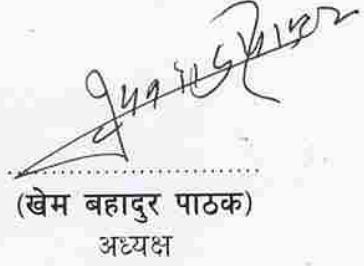 (खेम बहादुर पाठक)
अध्यक्ष